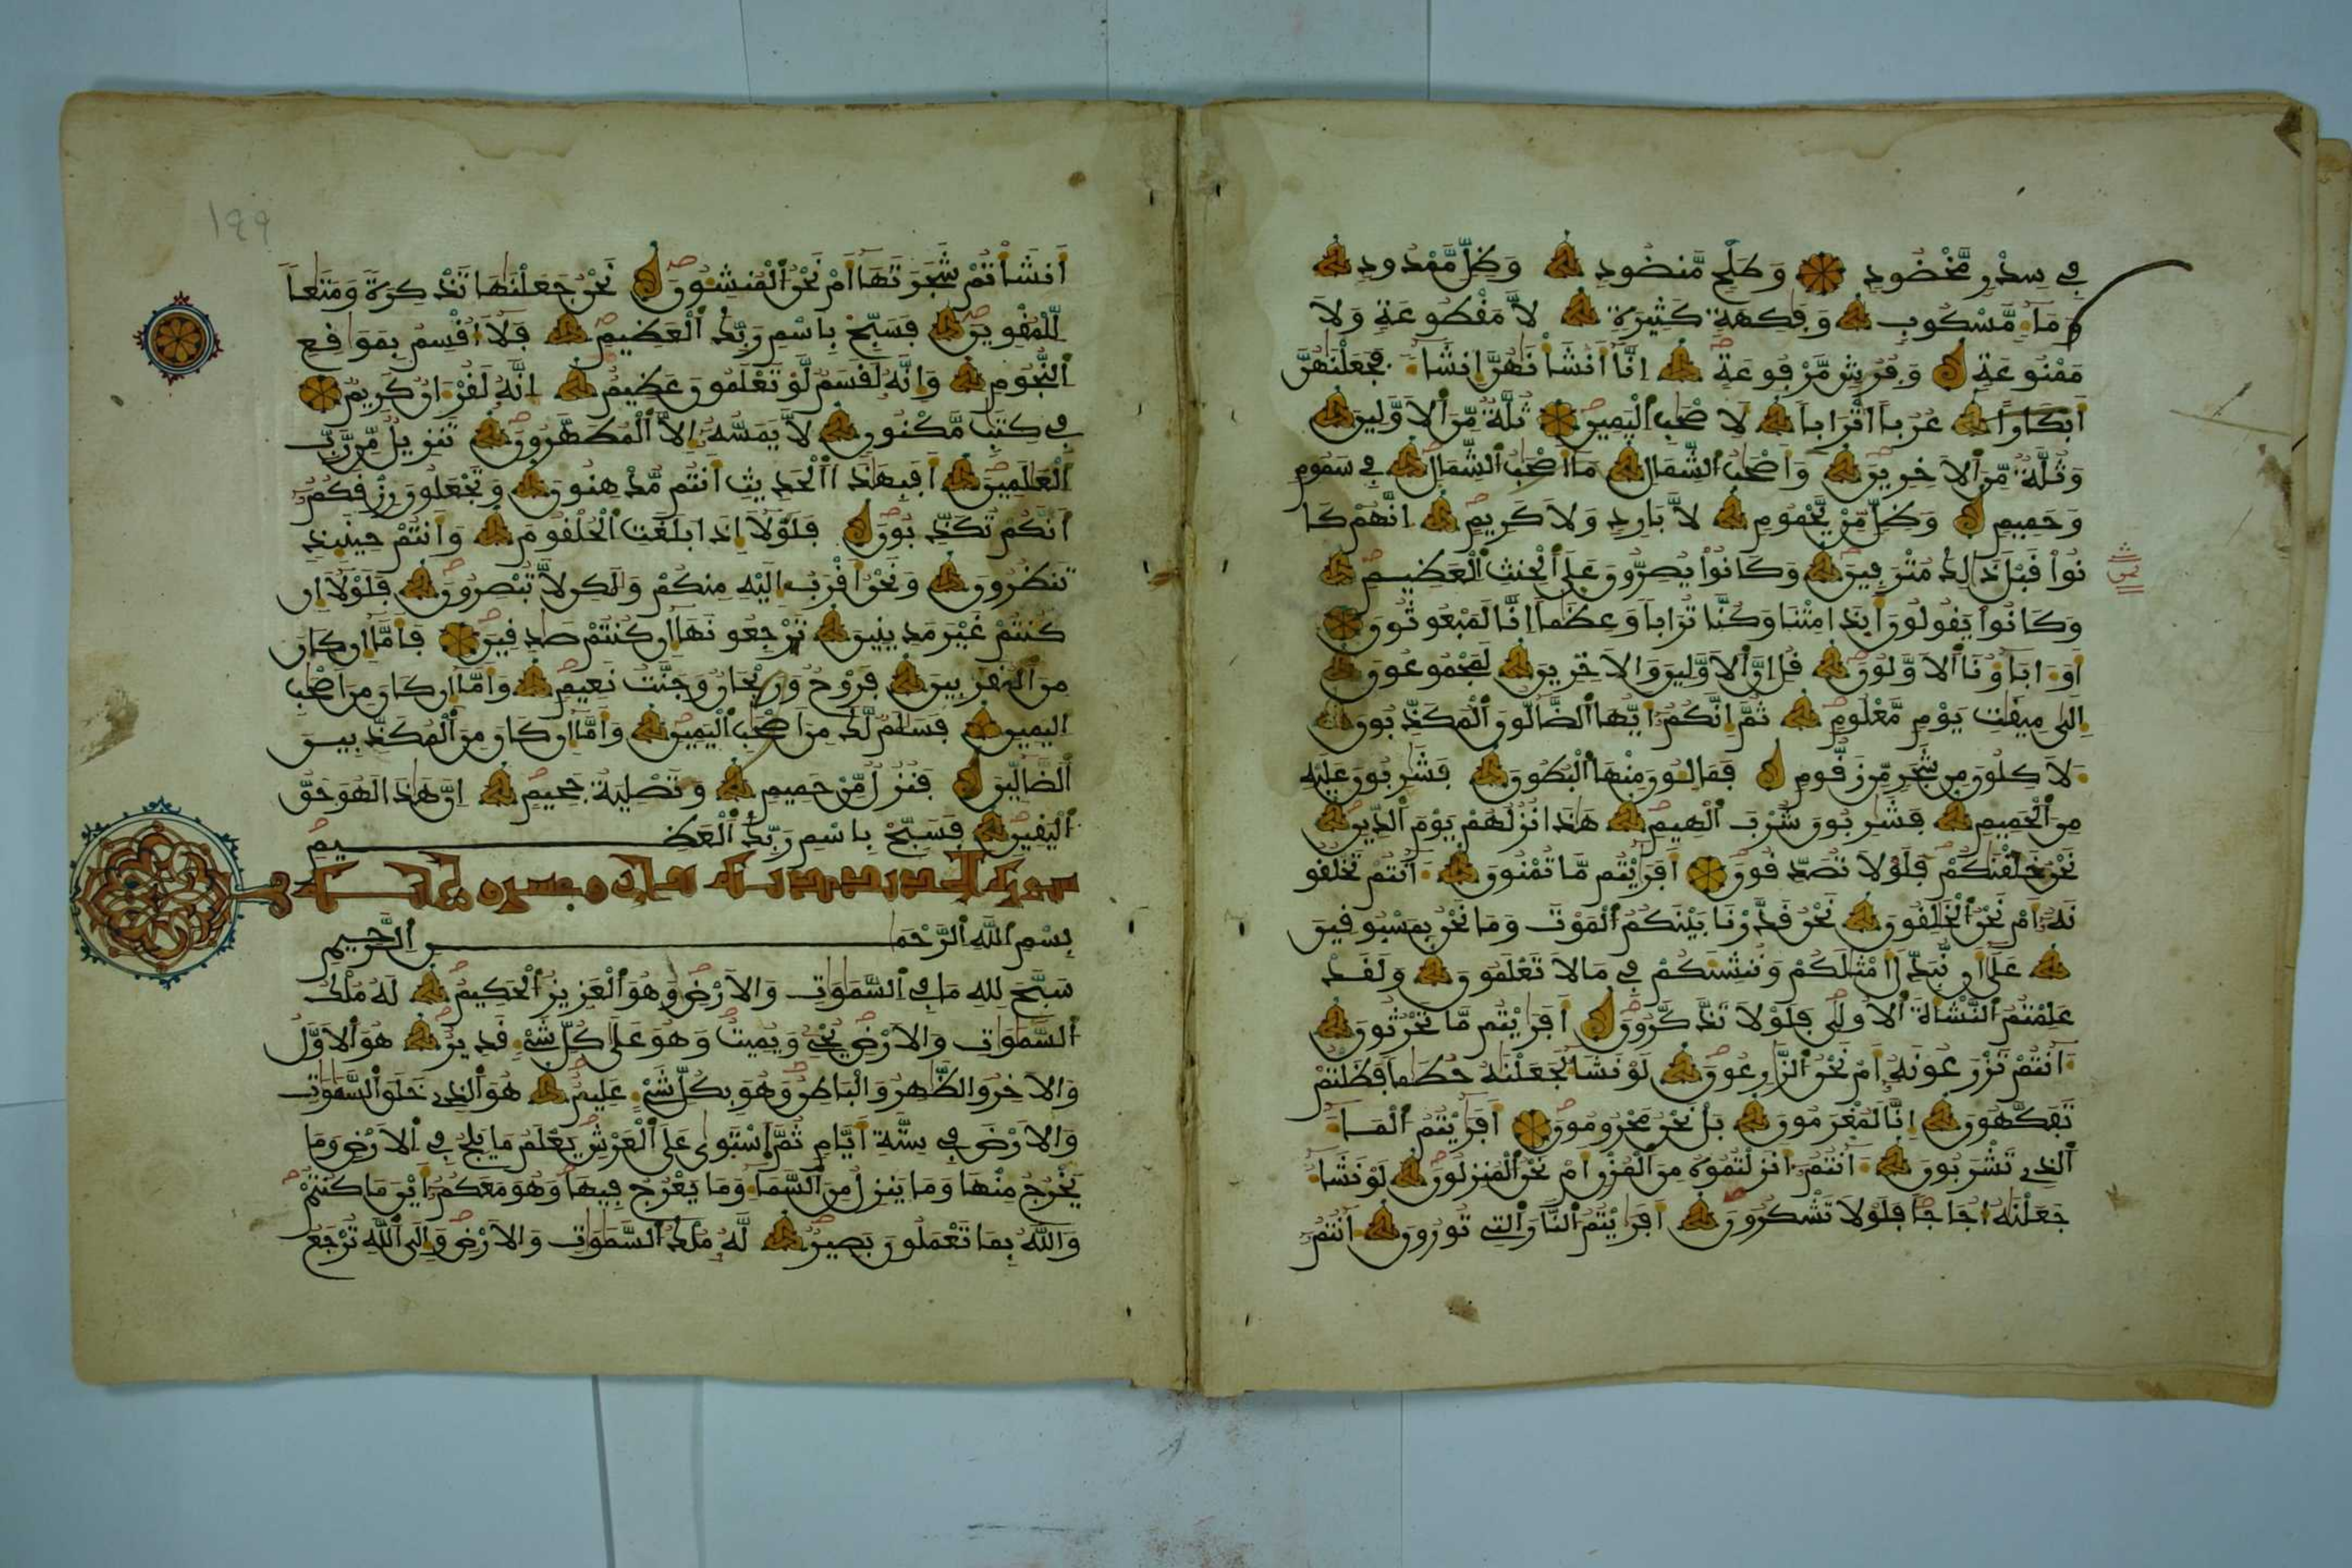 فِي سِدْرٍ مَّخْضُودٍ وَطَلْحٍ مَّنضُودٍ وَظِلٍّ مَّمْدُودٍ
وَمَاءٍ مَّسْكُوبٍ وَفَٰكِهَةٍ كَثِيرَةٍ لَّا مَقْطُوعَةٍ وَلَا
مَمْنُوعَةٍ وَفُرُشٍ مَّرْفُوعَةٍ إِنَّا أَنشَأْنَٰهُنَّ إِنشَاءً فَجَعَلْنَٰهُنَّ
أَبْكَارًا عُرُبًا أَتْرَابًا لِّأَصْحَٰبِ الْيَمِينِ ثُلَّةٌ مِّنَ الْأَوَّلِينَ
وَثُلَّةٌ مِّنَ الْأَخِرِينَ وَأَصْحَٰبُ الشِّمَالِ مَا أَصْحَٰبُ الشِّمَالِ فِي سَمُومٍ
وَحَمِيمٍ وَظِلٍّ مِّنْ يَّحْمُومٍ لَّا بَارِدٍ وَلَا كَرِيمٍ إِنَّهُمْ كَا
نُوا قَبْلَ ذَٰلِكَ مُتْرَفِينَ وَكَانُوا يُصِرُّونَ عَلَى الْحِنثِ الْعَظِيمِ
وَكَانُوا يَقُولُونَ أَيِذَا مِتْنَا وَكُنَّا تُرَابًا وَعِظَٰمًا إِنَّا لَمَبْعُوثُونَ
أَوَ ءَابَاؤُنَا الْأَوَّلُونَ قُلْ إِنَّ الْأَوَّلِينَ وَالْأَخِرِينَ لَمَجْمُوعُونَ
إِلَىٰ مِيقَٰتِ يَوْمٍ مَّعْلُومٍ ثُمَّ إِنَّكُمْ أَيُّهَا الضَّالُّونَ الْمُكَذِّبُونَ
لَأَكِلُونَ مِن شَجَرٍ مِّن زَقُّومٍ فَمَالِـُٔونَ مِنْهَا الْبُطُونَ فَشَٰرِبُونَ عَلَيْهِ
مِنَ الْحَمِيمِ فَشَٰرِبُونَ شُرْبَ الْهِيمِ هَٰذَا نُزُلُهُمْ يَوْمَ الدِّينِ
نَحْنُ خَلَقْنَٰكُمْ فَلَوْلَا تُصَدِّقُونَ أَفَرَٰيْتُم مَّا تُمْنُونَ ءَأَنتُمْ تَخْلُقُو
نَهُ أَمْ نَحْنُ الْخَٰلِقُونَ نَحْنُ قَدَّرْنَا بَيْنَكُمُ الْمَوْتَ وَمَا نَحْنُ بِمَسْبُوقِينَ
عَلَىٰ أَن نُّبَدِّلَ أَمْثَٰلَكُمْ وَنُنشِئَكُمْ فِي مَا لَا تَعْلَمُونَ وَلَقَدْ
عَلِمْتُمُ النَّشْأَةَ الْأُولَىٰ فَلَوْلَا تَذَّكَّرُونَ أَفَرَٰيْتُم مَّا تَحْرُثُونَ
ءَأَنتُمْ تَزْرَعُونَهُ أَمْ نَحْنُ الزَّٰرِعُونَ لَوْ نَشَاءُ لَجَعَلْنَٰهُ حُطَٰمًا فَظَلْتُمْ
تَفَكَّهُونَ إِنَّا لَمُغْرَمُونَ بَلْ نَحْنُ مَحْرُومُونَ أَفَرَٰيْتُمُ الْمَاءَ
الَّذِي تَشْرَبُونَ ءَأَنتُمُ أَنزَلْتُمُوهُ مِنَ الْمُزْنِ أَمْ نَحْنُ الْمُنزِلُونَ لَوْ نَشَاءُ
جَعَلْنَٰهُ أُجَاجًا فَلَوْلَا تَشْكُرُونَ أَفَرَٰيْتُمُ النَّارَ الَّتِي تُورُونَ ءَأَنتُمُ
ثمن
١٩٩
أَنشَأْتُمْ شَجَرَتَهَا أَمْ نَحْنُ الْمُنشِـُٔونَ نَحْنُ جَعَلْنَٰهَا تَذْكِرَةً وَمَتَٰعًا
لِّلْمُقْوِينَ فَسَبِّحْ بِاسْمِ رَبِّكَ الْعَظِيمِ فَلَا أُقْسِمُ بِمَوَٰقِعِ
النُّجُومِ وَإِنَّهُ لَقَسَمٌ لَّوْ تَعْلَمُونَ عَظِيمٌ إِنَّهُ لَقُرْءَانٌ كَرِيمٌ
فِي كِتَٰبٍ مَّكْنُونٍ لَّا يَمَسُّهُ إِلَّا الْمُطَهَّرُونَ تَنزِيلٌ مِّن رَّبِّ
الْعَٰلَمِينَ أَفَبِهَٰذَا الْحَدِيثِ أَنتُم مُّدْهِنُونَ وَتَجْعَلُونَ رِزْقَكُمُ
أَنَّكُمْ تُكَذِّبُونَ فَلَوْلَا إِذَا بَلَغَتِ الْحُلْقُومَ وَأَنتُمْ حِينَئِذٍ
تَنظُرُونَ وَنَحْنُ أَقْرَبُ إِلَيْهِ مِنكُمْ وَلَٰكِن لَّا تُبْصِرُونَ فَلَوْلَا إِن
كُنتُمْ غَيْرَ مَدِينِينَ تَرْجِعُونَهَا إِن كُنتُمْ صَٰدِقِينَ فَأَمَّا إِن كَانَ
مِنَ الْمُقَرَّبِينَ فَرَوْحٌ وَرَيْحَانٌ وَجَنَّتُ نَعِيمٍ وَأَمَّا إِن كَانَ مِنَ أَصْحَٰبِ
الْيَمِينِ فَسَلَٰمٌ لَّكَ مِنَ أَصْحَٰبِ الْيَمِينِ وَأَمَّا إِن كَانَ مِنَ الْمُكَذِّبِينَ
الضَّالِّينَ فَنُزُلٌ مِّنْ حَمِيمٍ وَتَصْلِيَةُ جَحِيمٍ إِنَّ هَٰذَا لَهُوَ حَقُّ
الْيَقِينِ فَسَبِّحْ بِاسْمِ رَبِّكَ الْعَظِيمِ
سورة الحديد مدنية وعشرون
بِسْمِ اللَّهِ الرَّحْمَٰنِ الرَّحِيمِ
سَبَّحَ لِلَّهِ مَا فِي السَّمَٰوَٰتِ وَالْأَرْضِ وَهُوَ الْعَزِيزُ الْحَكِيمُ لَهُ مُلْكُ
السَّمَٰوَٰتِ وَالْأَرْضِ يُحْيِ وَيُمِيتُ وَهُوَ عَلَىٰ كُلِّ شَيْءٍ قَدِيرٌ هُوَ الْأَوَّلُ
وَالْأَخِرُ وَالظَّٰهِرُ وَالْبَاطِنُ وَهُوَ بِكُلِّ شَيْءٍ عَلِيمٌ هُوَ الَّذِي خَلَقَ السَّمَٰوَٰتِ
وَالْأَرْضَ فِي سِتَّةِ أَيَّامٍ ثُمَّ اسْتَوَىٰ عَلَى الْعَرْشِ يَعْلَمُ مَا يَلِجُ فِي الْأَرْضِ وَمَا
يَخْرُجُ مِنْهَا وَمَا يَنزِلُ مِنَ السَّمَاءِ وَمَا يَعْرُجُ فِيهَا وَهُوَ مَعَكُمُ أَيْنَ مَا كُنتُمْ
وَاللَّهُ بِمَا تَعْمَلُونَ بَصِيرٌ لَّهُ مُلْكُ السَّمَٰوَٰتِ وَالْأَرْضِ وَإِلَى اللَّهِ تُرْجَعُ